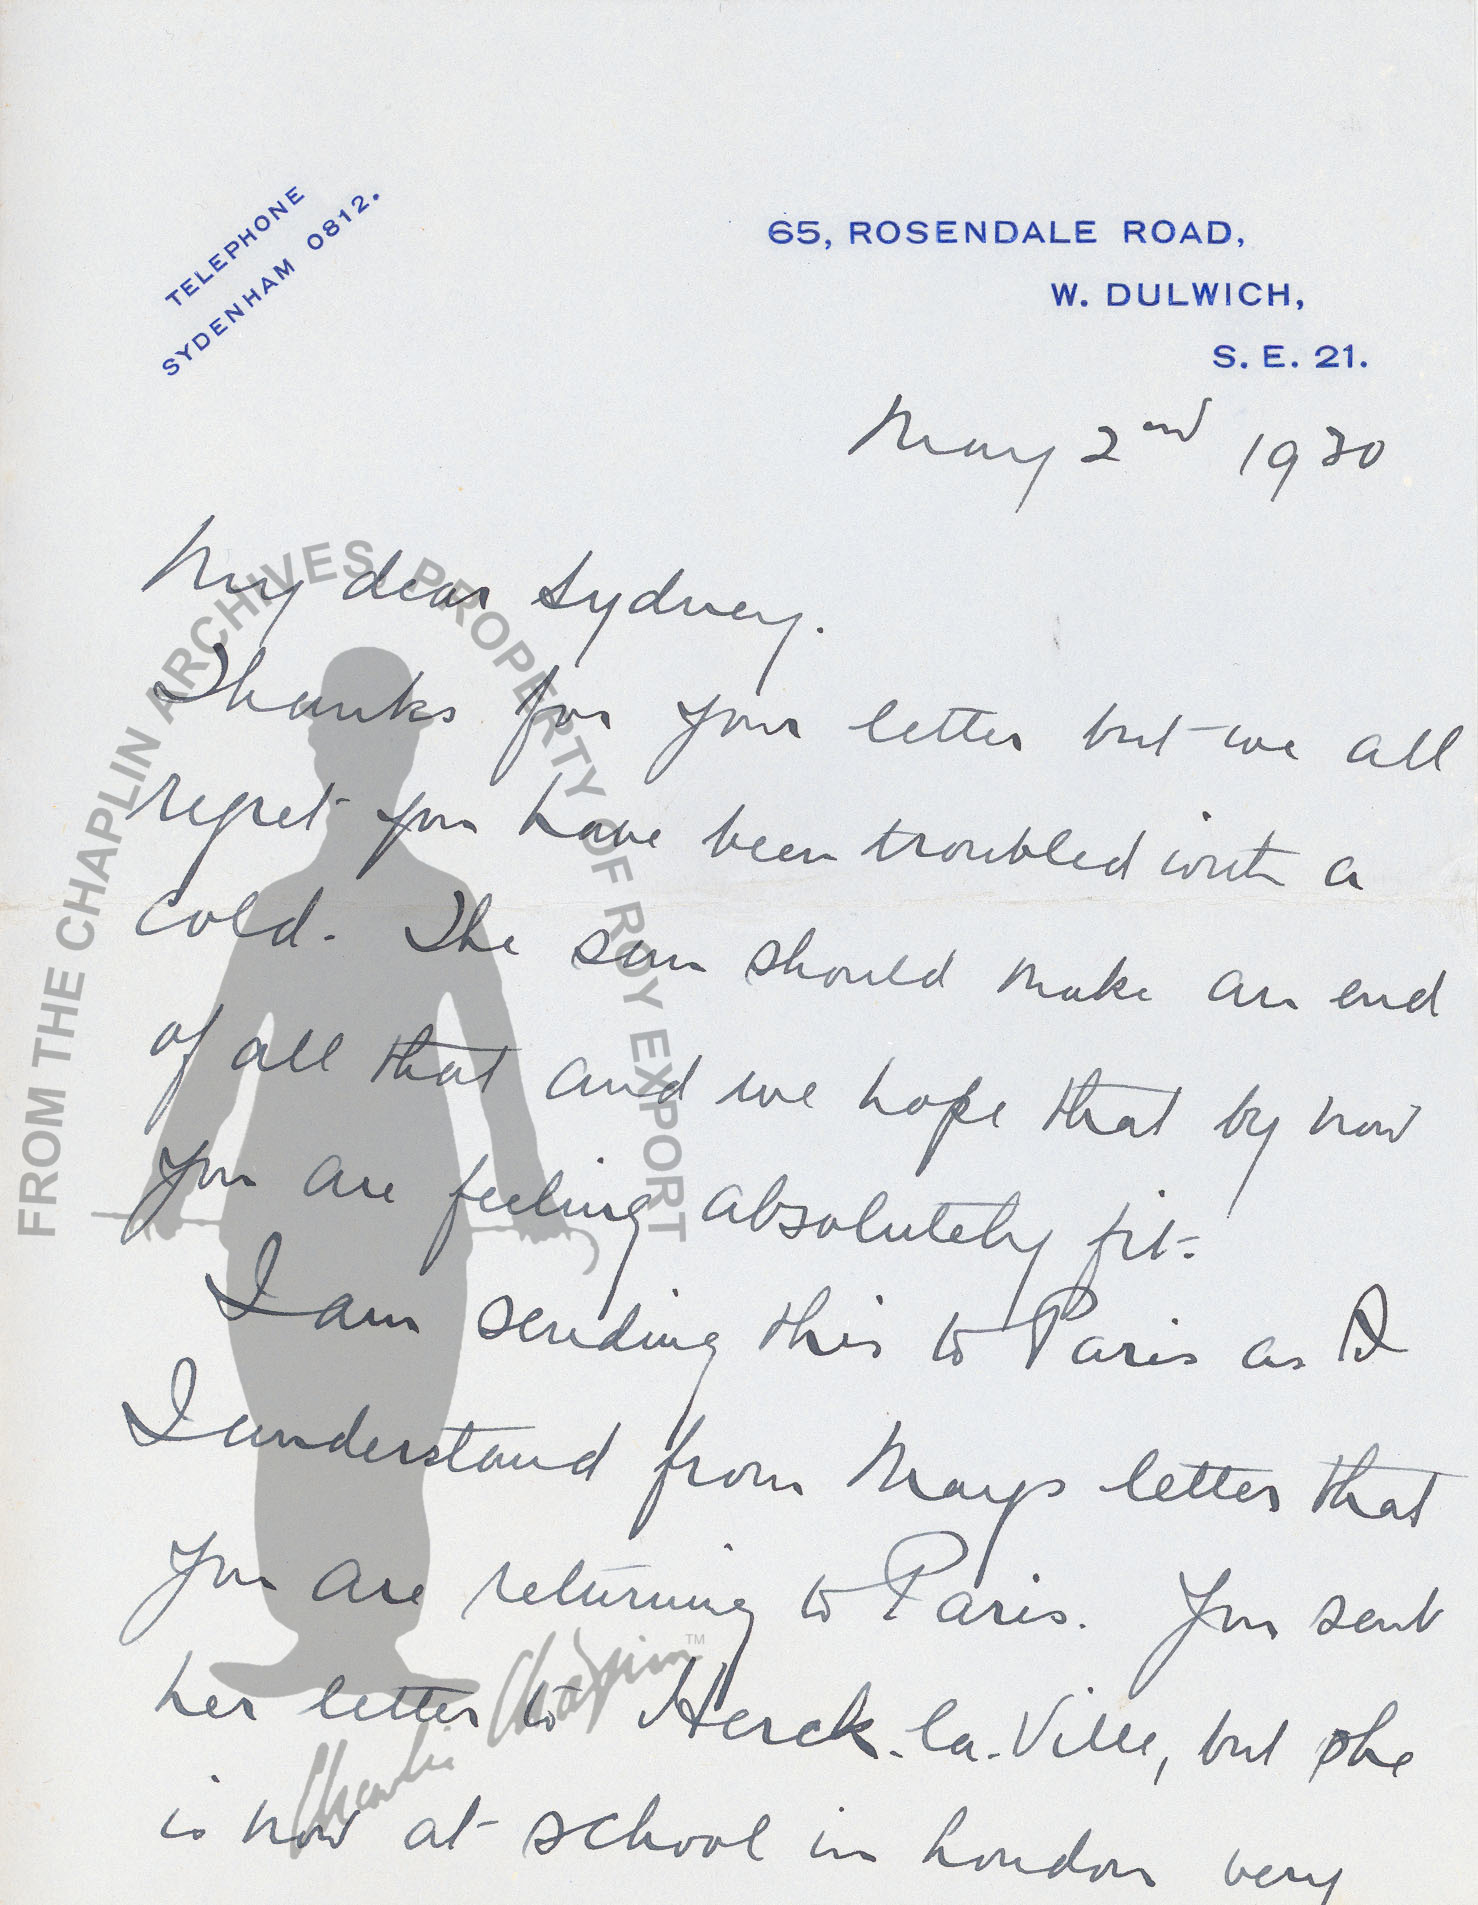 TELEPHONE
SYDENHAM 0812.
65, ROSENDALE ROAD,
W. DULWICH,
S. E. 21.
May 2nd 1930
My dear Sydney.
Thanks for your letter but we all
regret you have been troubled with a
cold. The sun should make an end
of all that and we hope that by now
you are feeling absolutely fit.
I am sending this to Paris as I
I understand from Mays letter that
you are returning to Paris. You sent
her letter to Herck-la-Ville, but she
is now at school in London very
FROM THE CHAPLIN ARCHIVES. PROPERTY OF ROY EXPORT
Charlie Chaplin™